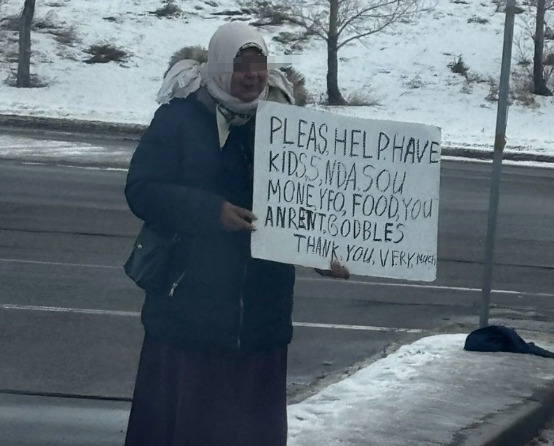 PLEAS.HELP.HAVE
KIDS,5,NDA.SOU
MONE,YFO,FOOD,YOU
ANRENT.GODBLES
THANK YOU, VERY, MUCH,